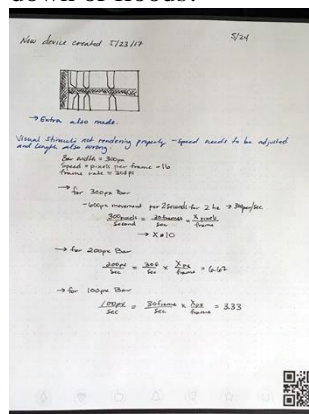 down or floods.
New device created 5/23/17
5/24
→ Extra also made.
Visual stimuli not rendering properly - Speed needs to be adjusted
and length also wrong.
Bar width = 300px
Speed = pixels per frame = 16
frame rate = 30fps
→ for 300px Bar
- 600px movement per 2 seconds for 2 hz → 300px/sec
300 pixels / Second = 30 frames / Sec × X pixels / frame
→ X = 10
→ for 200px Bar
200px / Sec = 30f / Sec × X px / frame = 6.67
→ for 100px Bar
100px / Sec = 30 frame / Sec × X px / frame = 3.33